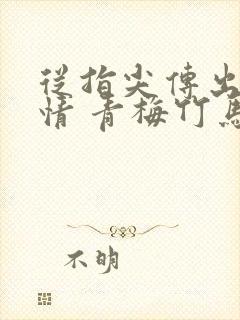 從指尖傳出
情 青梅竹馬
不明